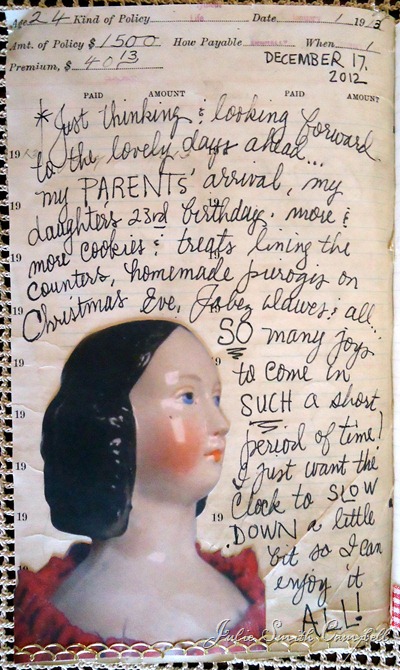 Age 24 Kind of Policy Life Date 1 1913
Amt. of Policy $ 1500 How Payable When 1
Premium, $ 40 13
DECEMBER 17, 2012
PAID AMOUNT PAID AMOUNT
*Just thinking & looking forward
19 to the lovely days ahead...
my PARENTS' arrival, my
19 daughter's 23rd birthday, more &
more cookies & treats lining the
19 counters, homemade pierogis on
Christmas Eve, Jabez Dawes & all...
19 SO many joys
19 to come in
SUCH a short
period of time!
19 I just want the
19 19 clock to SLOW
DOWN a little
19 bit so I can
enjoy it
ALL!
Julie Smith Campbell